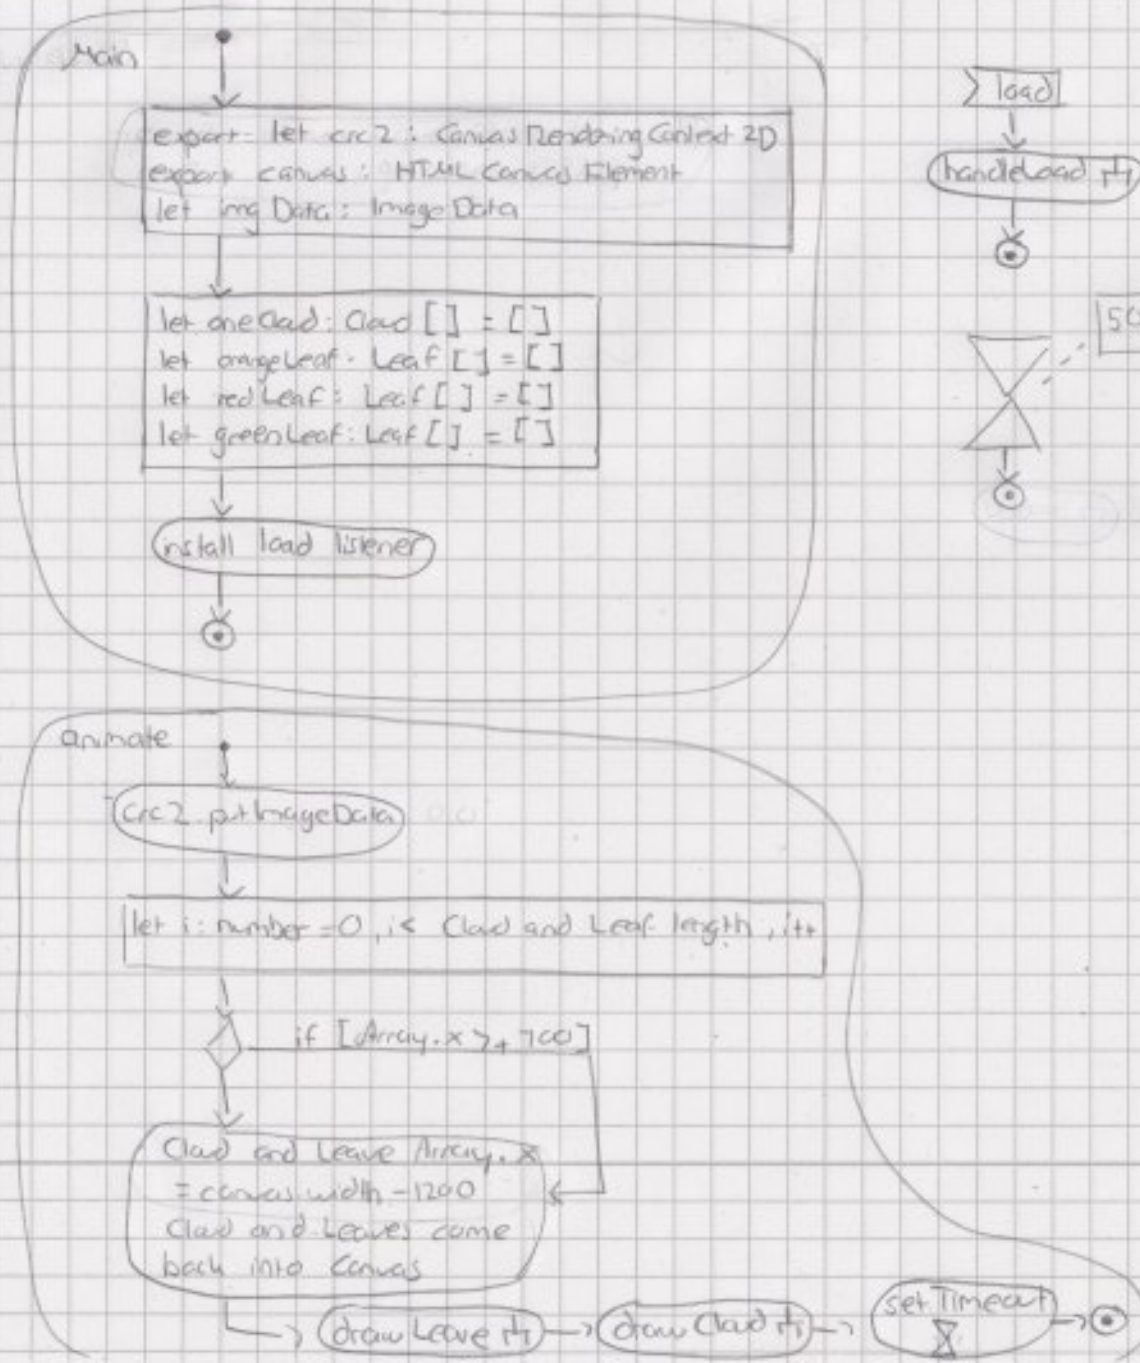 Main
export let crc2 : CanvasRenderingContext 2D
export canvas : HTML Canvas Element
let img Data : Image Data
let oneClad : Clad [ ] = [ ]
let orangeLeaf : Leaf [ ] = [ ]
let redLeaf : Leaf [ ] = [ ]
let greenLeaf : Leaf [ ] = [ ]
install load listener
load
handleLoad
animate
crc2.putImageData
let i : number = 0 , i < Clad and Leaf length , i++
if [Array.x >+ 700]
Clad and Leave Array.x
= canvas.width - 1200
Clad and Leaves come
back into Canvas
draw Leave
draw Clad
setTimeout